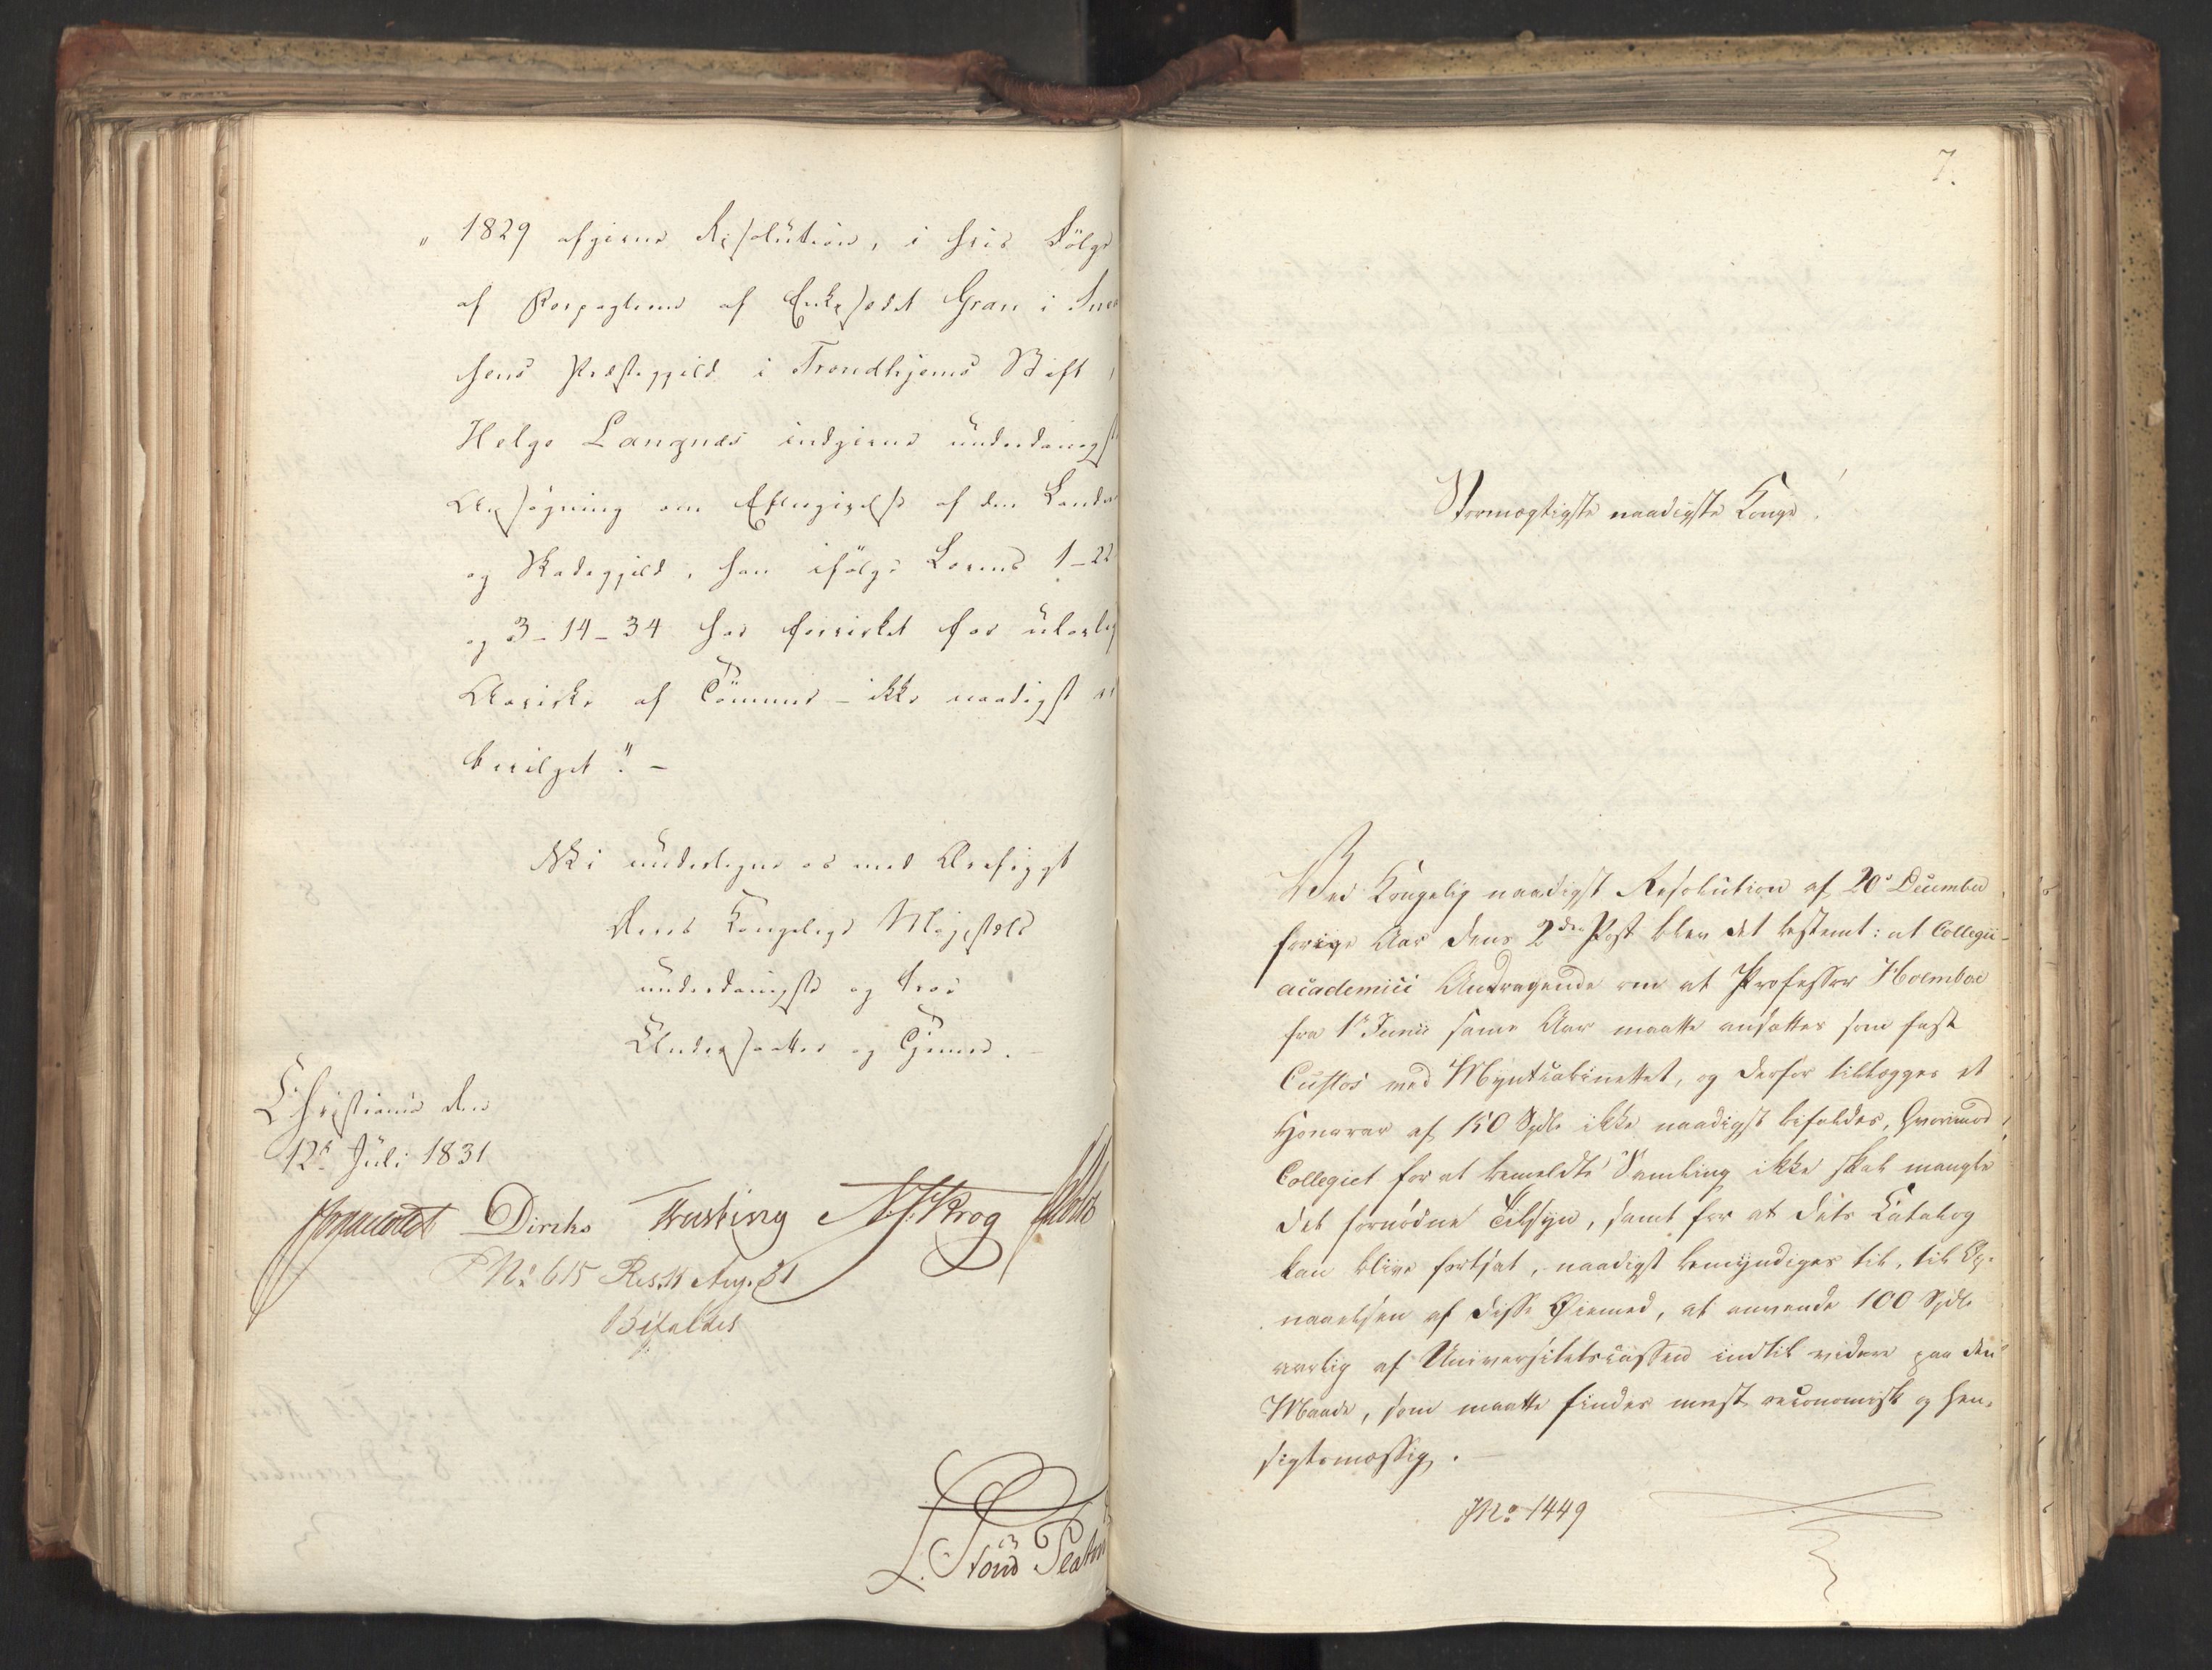 " 1829 afgivne Resolution, i hvis Følge
af Forpagteren af Enkesædet Gran i Snaa-
sens Præstegjeld i Trondhjems Stift,
Helge Langnæs indgivne underdanigst
Ansøgning om Eftergivelse af den Lands
og Skadegjeld, han ifølge Lovens 1-22
og 3-14-34 har forvirket for ulovlig
Aavirke af Tømmer - ikke naadigst er
bevilget". -
Vi undertegne os med Ærefrygt
Deres Kongelige Majestæts
underdanigste og troe
Undersaatter og Tjenere. -
Christiania den
12te Juli 1831
Diriks Treschow Krog
No 615 Res. 11 Aug. 31
Bifaldes
7.
Stormægtigste naadigste Konge!
Ved Kongelig naadigst Resolution af 20de December
forige Aar dens 2den Post blev det bestemt: at Collegii
academici Andragende om at Professor Holmboe
fra 1te Junii samme Aar maatte ansættes som fast
Custos med Myntcabinettet, og derfor tillægges et
Honorar af 150 Spdlr ikke naadigst bifaldes, hvorimod
Collegiet for at bemeldte Samling ikke skal mangle
det fornødne Tilsyn, samt for at dets Catalog
kan blive fortsat, naadigst bemyndiges til, til Op-
naaelsen af disse Øiemed, at anvende 100 Spdlr
aarlig af Universitetscassen indtil videre paa den
Maade, som maatte findes meest oeconomisk og hen-
sigtsmæssig. -
JNo 1449